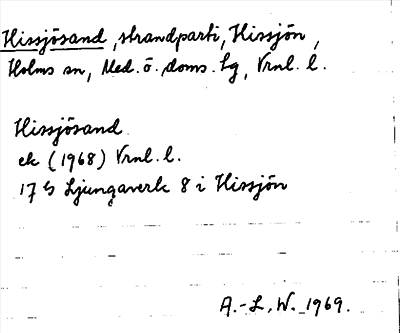 Hissjösand, strandparti, Hissjön,
Holms sn, Med. ö. doms. lg, Vrnl. l.
Hissjösand
ek (1968) Vrnl. l.
17 G Ljungaverk 8 i Hissjön
A.-L. W. 1969.